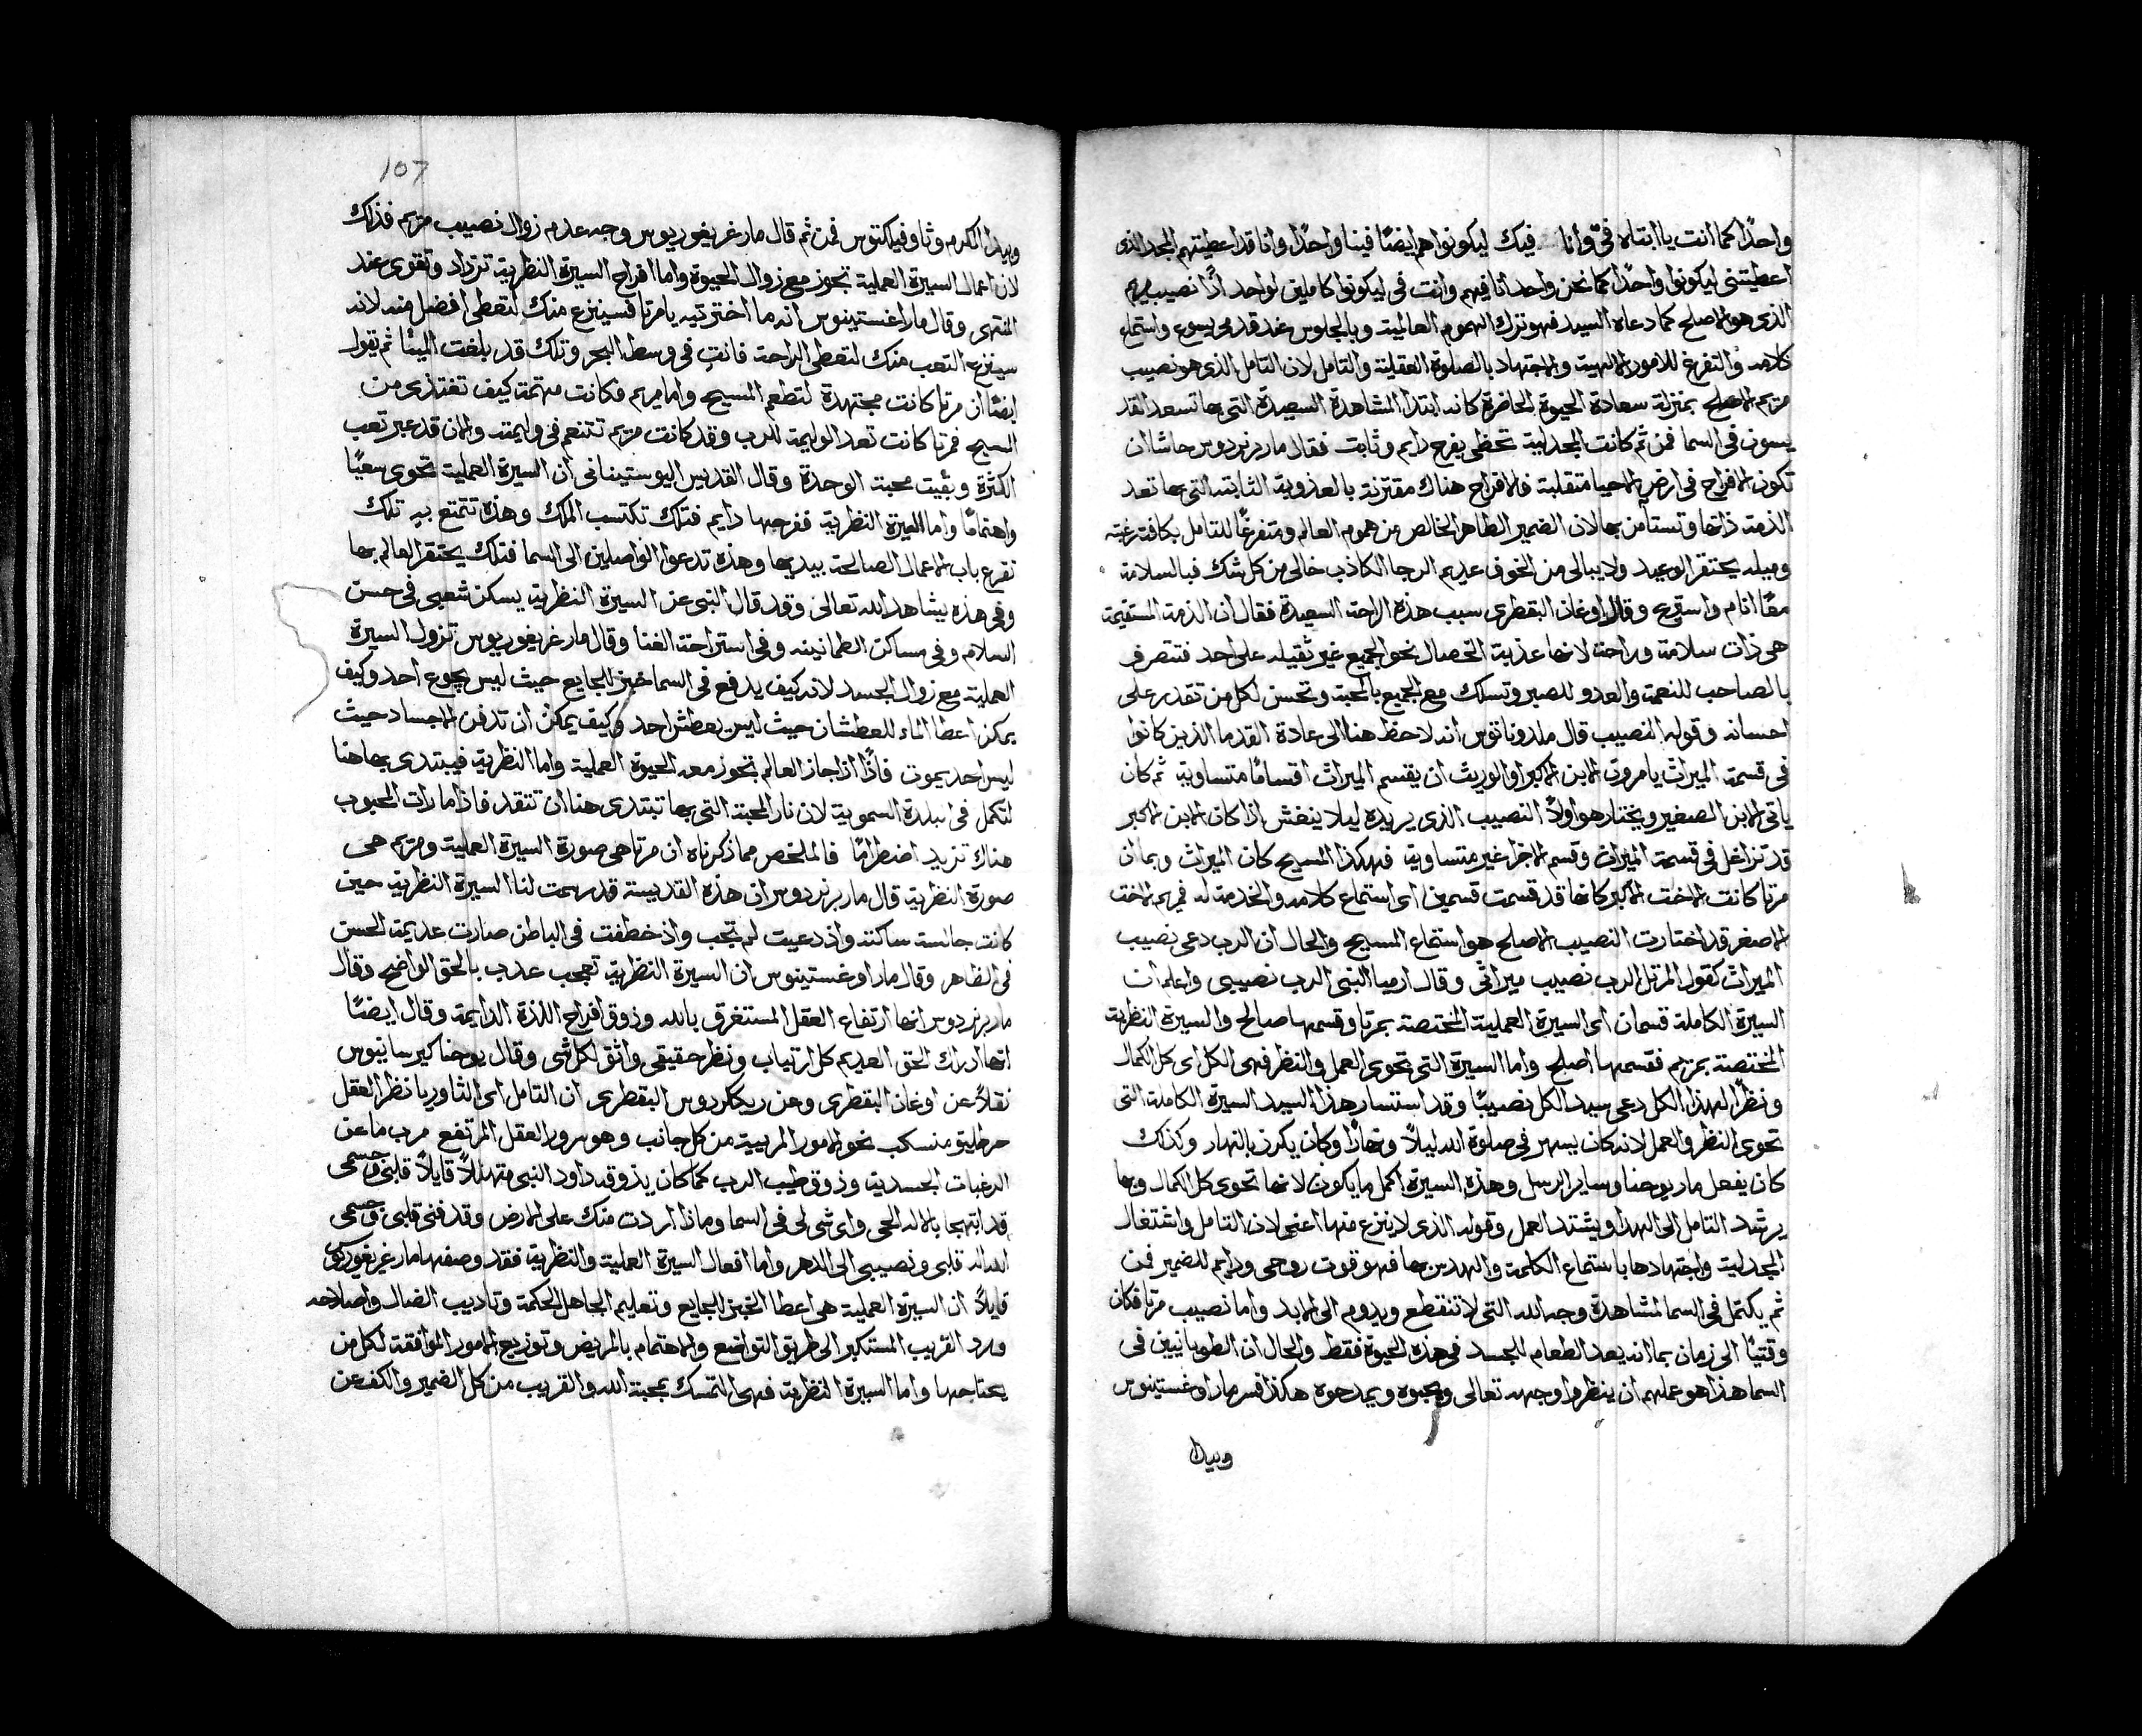 واحدًا كما انت يا ابتاه فيّ وانا فيك ليكونوا هم ايضًا فينا واحدًا وانا قد اعطيتهم المجد الذى
اعطيتنى ليكونوا واحدًا كما نحن واحد انا فيهم وانت فى ليكونوا كاملين لواحد اذًا نصيب مريم
الذى هو الاصلح كما دعاه السيد فهو ترك الهموم العالمية وبالجلوس عند قدمى يسوع واستماع
كلامه والتفرغ للامور الالهية والاجتهاد بالصلوة العقلية والتامل لان التامل الذى هو نصيب
مريم الاصلح بمنزلة سعادة الحيوة الحاضرة كانه ابتدا المشاهدة السعيدة التى بها تسعد القد
يسون فى السما فمن ثم كانت المجدلية تحظى بفرح دايم وثابت فقال مار برنردوس حاشا ان
تكون الافراح فى ارض الاحيا متقلبة فالافراح هناك مقترنة بالعذوبة الثابته التى بها تعد
الذمة ذاتها وتستامن بها لان الضمير الطاهر الخالص من هموم العالم ومتفرغًا للتامل بكافة رغبته
وميله يحتقر الوعيد ولا يبالى من الخوف عديم الرجا الكاذب خالى من كل شك فبالسلامة
معًا انام واستريح وقال اوغان البقطرى سبب هذه الراحة السعيدة فقال ان الذمة المستقيمة
هى ذات سلامة وراحة لانها عذبة الخصال نحو الجميع غير ثقيله على احد فتتصرف
بالصاحب للنعمة والعدو للصبر وتسلك مع الجميع بالمحبة وتحسن لكل من تقدر على
احسانه وقوله النصيب قال ملدوناتوس انه لاحظ هنا الى عادة القدما الذين كانوا
فى قسمة الميراث يامرون الابن الاكبر او الوريث ان يقسم الميراث اقسامًا متساوية ثم كان
ياتى الابن الصغير ويختار هو اولاً النصيب الذى يريده ليلا ينغش اذا كان الابن الاكبر
قد تزاغل فى قسمة الميراث وقسم الاخرا غير متساوية فهكذا المسيح كان الميراث وبما ان
مرتا كانت الاخت الاكبر كانها قد قسمت قسمين اى استماع كلامه والخدمة له فمريم الاخت
الاصغر قد اختارت النصيب الاصلح هو استماع المسيح والحال ان الرب دعى نصيب
الميراث كقول المرتل الرب نصيب ميراثى وقال ارميا النبى الرب نصيبى واعلم ان
السيرة الكاملة قسمان اى السيرة العملية المختصة بمرتا وقسمها صالح والسيرة النظرية
المختصة بمريم فقسمها اصلح واما السيرة التى تحوى العمل والنظر فهى الكل اى كل الكمال
ونظرًا لهذا الكل دعى سيد الكل نصيبًا وقد استسار هذا السيد السيرة الكاملة التى
تحوى النظر والعمل لانه كان يسهر فى صلوة الله ليلاً ونهارًا وكان يكرز بالنهار وكذلك
كان يفعل مار يوحنا وساير الرسل وهذه السيرة اكمل ما يكون لانها تحوى كل الكمال وبها
يرشد التامل الى الهدا ويشتد العمل وقوله الذى لا ينزع منها اعنى لان التامل واشتغال
المجدلية واجتهادها باستماع الكلمة والهدس بها فهو قوت روحى ودايم للضمير فمن
ثم يكتمل فى السما لمشاهدة وجه الله التى لا تنقطع ويدوم الى الابد واما نصيب مرتا فكان
وقتيًا الى زمان بما انه يعد الطعام للجسد فى هذه الحيوة فقط والحال ان الطوبانيين فى
السما هذا هو عملهم ان ينظروا وجهه تعالى ويحبوه ويمدحوه هكذا فسر مار اوغستينوس
وبيدا
107
وبيدا المكرم وثاوفيلكتوس فمن ثم قال مار غريغوريوس وجه عدم زوال نصيب مريم فذلك
لان اعمال السيرة العملية تجوز مع زوال الحيوة واما افراح السيرة النظرية تزداد وتقوى عند
المنتهى وقال مار اغستينوس انه ما اخترتيه يا مرتا فسينزع منك لتعطى افضل منه لانه
سينزع التعب منك لتعطى الراحة فانتِ فى وسط البحر وتلك قد بلغت المينا ثم يقول
ايضًا ان مرتا كانت مجتهدة لتطعم المسيح واما مريم فكانت مهتمة كيف تغتذى من
المسيح فمرتا كانت تعد الوليمة للرب وقد كانت مريم تتنعم فى وليمته والان قد عبر تعب
الكثرة وبقيت محبة الوحدة وقال القديس اليوستينيانى ان السيرة العملية تحوى سعيًا
واهتمامًا واما السيرة النظرية ففرحها دايم فتلك تكتسب الملك وهذه تتمتع به تلك
تقرع باب الاعمال الصالحة بيديها وهذه تدعوا الواصلين الى السما فتلك يحتقر العالم بها
وفى هذه يشاهد الله تعالى وقد قال النبى عن السيرة النظرية يسكن شعبى فى حسن
السلام وفى مساكن الطمانينه وفى استراحة الغنا وقال مار غريغوريوس تزول السيرة
العملية مع زوال الجسد لانه كيف يدفع فى السما خبز للجايع حيث ليس يجوع احد وكيف
يمكن اعطا الماء للعطشان حيث ليس يعطش احد وكيف يمكن ان تدفن الاجساد حيث
ليس احد يموت فاذًا اذا جاز العالم تجوز معه الحيوة العملية واما النظرية فيبتدى بها هنا
لتكمل فى البلدة السموية لان نار المحبة التى بها تبتدى هنا ان تتقد فاذا ما رات المحبوب
هناك تزيد اضطرامًا فالملخص مما ذكرناه ان مرتا هى صورة السيرة العملية ومريم هى
صورة النظرية قال مار برنردوس ان هذه القديسة قد رسمت لنا السيرة النظرية حين
كانت جالسة ساكتة واذ دعيت لم تجب واذ خطفت فى الباطن صارت عديمة الحس
فى الظاهر وقال مار اوغستينوس ان السيرة النظرية تعجب عذب بالحق الواضح وقال
مار برنردوس انها ارتفاع العقل المستغرق بالله وذوق افراح اللذة الدايمة وقال ايضًا
انها ادراك الحق العديم كل ارتياب ونظر حقيقى واثق لكل شى وقال يوحنا كيرسانيوس
نقلاً عن اوغان البقطرى وعن ريكاردوس البقطرى ان التامل اى الثاوريا نظر العقل
منسكب نحو الامور المريية من كل جانب وهو سرور العقل المرتفع ما عن
الرغبات الجسدية وذوق طيب الرب كما كان يذوقه داود النبى متهللاً قايلاً قلبى وجسمى
قد ابتهجا بالاله الحى واى شى لى فى السما وماذا اردت منك على الارض وقد فنى قلبى وجسمى
الله اله قلبى ونصيبى الى الدهر واما افعال السيرة العملية والنظرية فقد وصفها مار غريغوريوس
قايلاً ان السيرة العملية هى اعطا الخبز للجايع وتعليم الجاهل الحكمة وتاديب الضال واصلاحه
ورد القريب المستكبر الى طريق التواضع والاهتمام بالمريض وتوزيع الامور الموافقة لكل من
يحتاجها واما السيرة النظرية فهى التمسك بمحبة الله والقريب من كل الضمير والكف عن